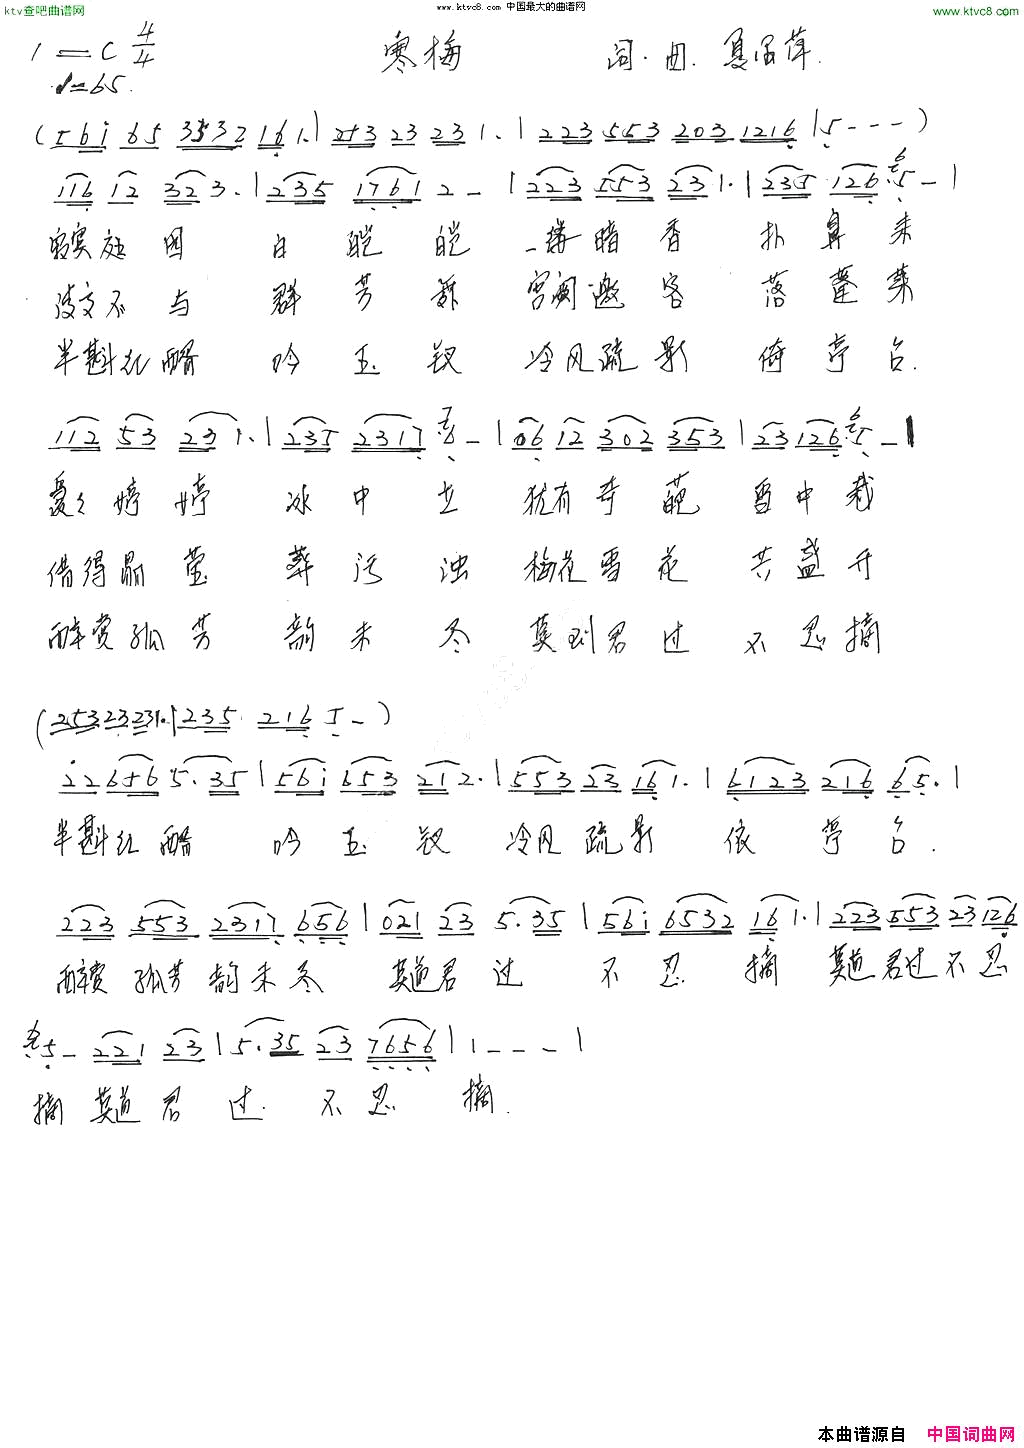 ktv查吧曲谱网
www.ktvc8.com 中国最大的曲谱网
www.ktvc8.com
1=C 4/4 寒梅 词.曲.夏
♩=65.
(561 65 3532 161.|253 23 231.|223 553 203 1216|5---)
116 12 323.|235 1761 2-|223 553 231.|235 126 5-|
寂寞庭园 白皑皑 一缕暗香 扑鼻来
没文不与 群芳 宫阙邀客 落蓬莱
半斟红醑 吟玉钗 冷风疏影 倚亭台.
112 53 231.|235 2317 6-|06 12 302 353|23 126 5-|
婷婷 冰中立 犹有奇葩 雪中栽
借得晶莹 葬污浊 梅花雪花 共盛开
醉赏孤芳 韵未尽 莫到君过 不忍摘
(253 23 231.|235 216 1-)
22 656 5.35|561 653 212.|553 23 161.|6123 216 65.|
半斟红醑 吟玉钗 冷风疏影 依亭台.
223 553 2317 656|021 23 5.35|561 6532 161.|223 553 23 126
醉赏孤芳韵未尽 莫道君过 不忍 摘 莫道君过不忍
5- 221 23|5.35 23 7656|1---|
摘 莫道君过. 不忍 摘.
本曲谱源自 中国词曲网